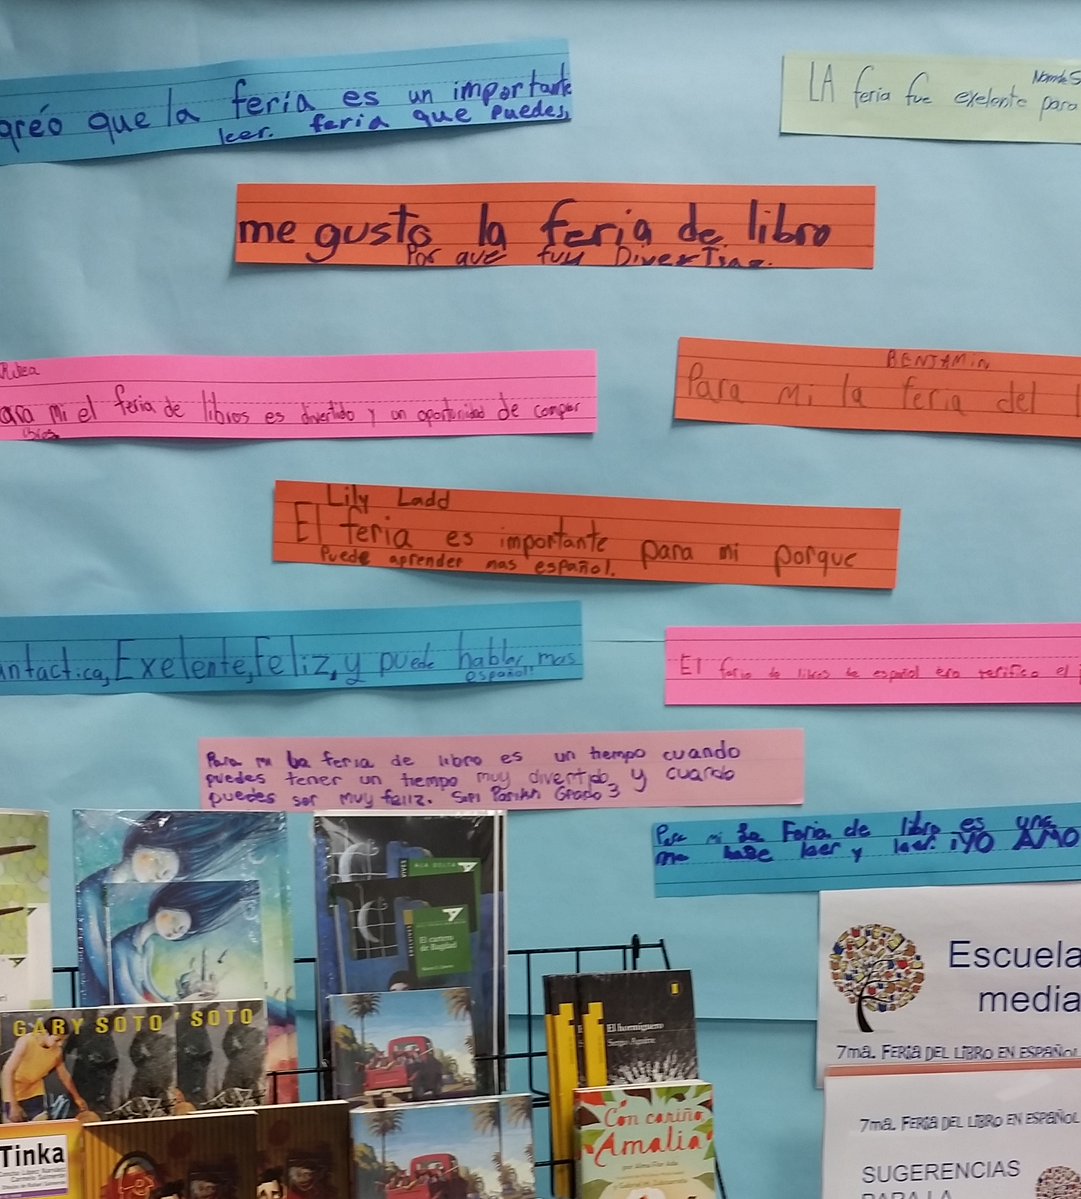 creo que la feria es un importante
feria que Puedes
leer.
Nombre
LA feria fue exelente para
me gusto la feria de libro
Por que fuy Divertido.
Para mi el feria de libros es divertido y un oportunidad de comprar
libros
BENJAMiN
Para Mi la feria del
Lily Ladd
El feria es importante para mi porque
Puede aprender mas español.
Exelente, Feliz, y puede hablar mas
español!!
El feria de libros de español era
el
Para mi la feria de libro es un tiempo cuando
puedes tener un tiempo muy divertido y cuando
puedes ser muy feliz. Grado 3
Para mi la Feria de libro es
me hase leer y leer. ¡YO AMO
ALA DELTA
El cartero
de Bagdad
GARY SOTO SOTO
El hormiguero
Sergio Aguirre
Con cariño,
Amalia
por Alma Flor Ada
Tinka
Escuela
media
7ma. FERIA DEL LIBRO EN ESPAÑOL
7ma. FERIA DEL LIBRO EN ESPAÑOL
SUGERENCIAS
PARA LA